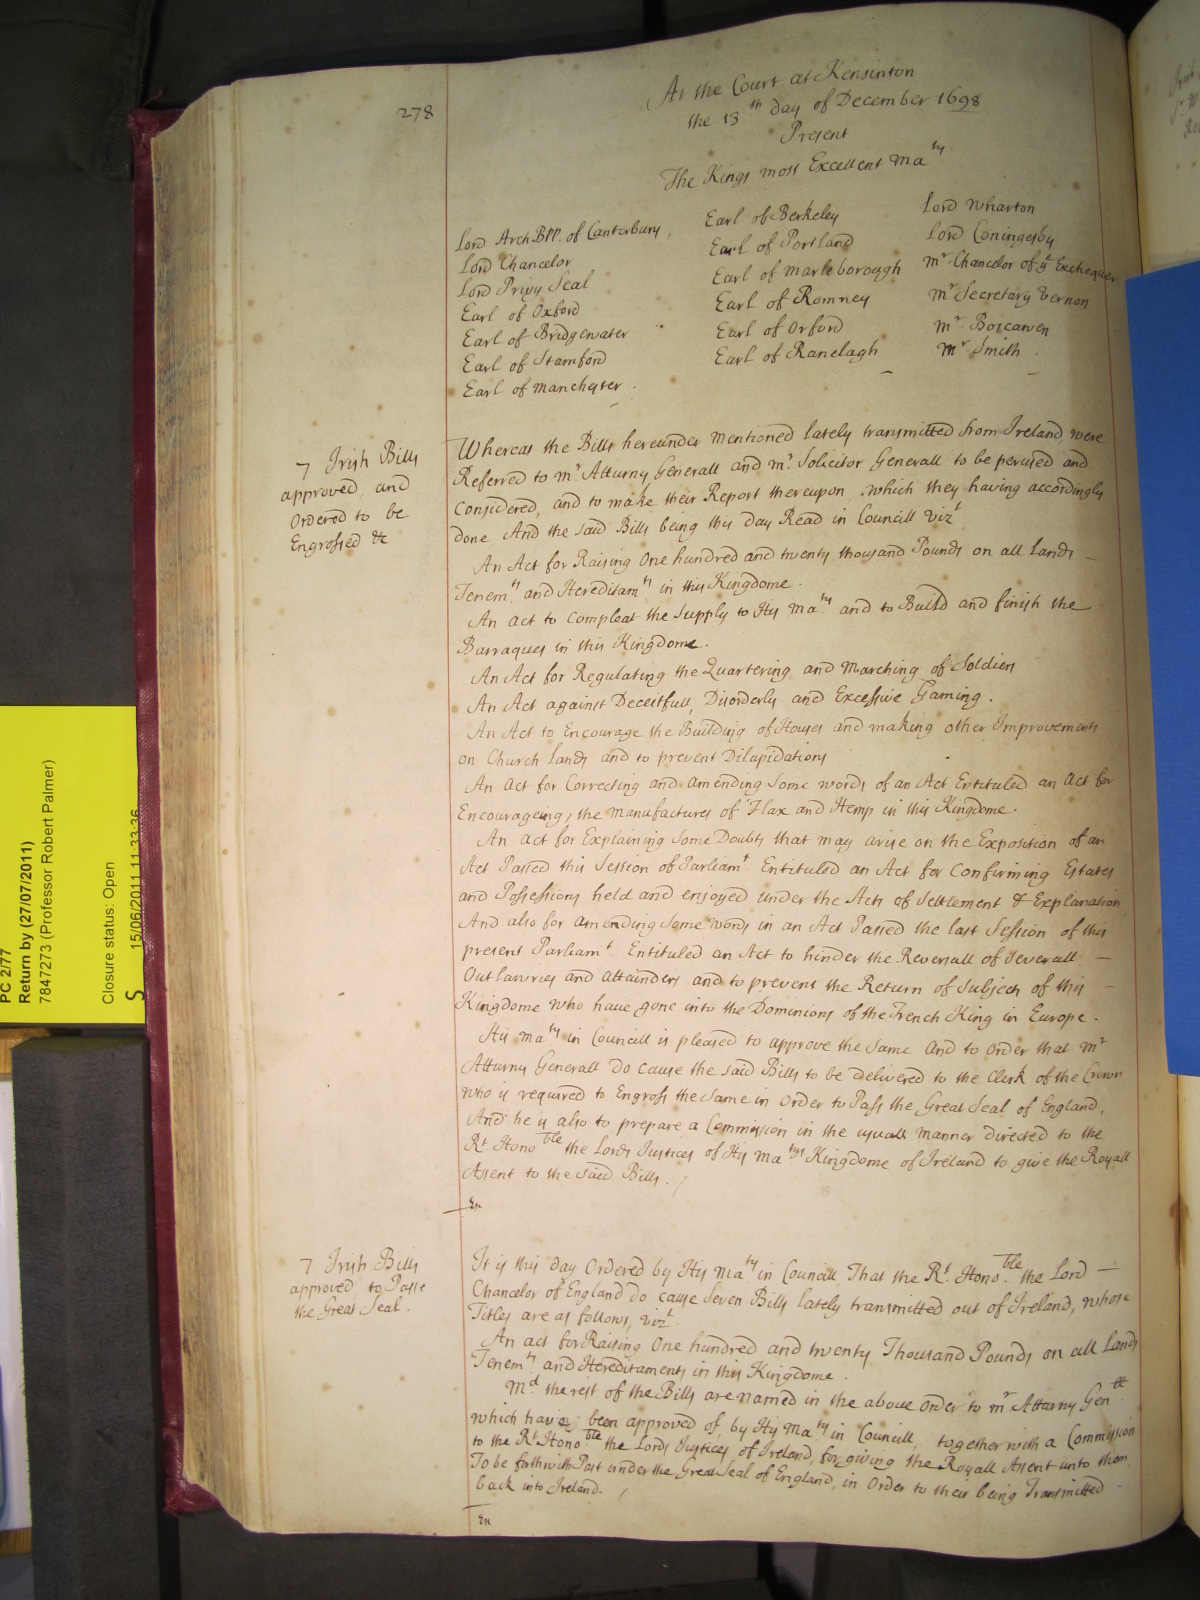 278
At the Court at Kensinton
the 13th day of December 1698
Present
The Kings most Excellent Maty
Lord ArchBPP. of Canterbury,
Lord Chancelor
Lord Privy Seal
Earl of Oxford
Earl of Bridgewater
Earl of Stamford
Earl of Manchester.
Earl of Berkeley
Earl of Portland
Earl of Marleborough
Earl of Romney
Earl of Orford
Earl of Ranelagh
Lord Wharton
Lord Coningesby
Mr Chancelor of ye Exchequer
Mr Secretary Vernon
Mr Boscawen
Mr Smith
7 Irish Bills
approved, and
Ordered to be
Engrossed &c
Whereas the Bills hereunder Mentioned lately transmitted from Ireland, were
Referred to Mr Atturny Generall and Mr Solicitor Generall to be perused and
considered, and to make their Report thereupon, which they having accordingly
done. And the said Bills being this day Read in Councill Vizt
An Act for Raising One hundred and twenty thousand Pounds on all Lands
Tenemts and Hereditamts in this Kingdome.
An act to compleat the Supply to His Maty and to Build and finish the
Barraques in this Kingdome.
An Act for Regulating the Quartering and Marching of Soldiers
An Act against Deceitfull, Disorderly and Excessive Gaming.
An Act to Encourage the Building of Houses and making other Improvements
on Church Lands and to prevent Dilapidations
An Act for Correcting and Amending Some words of an Act Entituled an Act for
Encourageing, the Manufactures of Flax and Hemp in this Kingdome.
An Act for Explaining Some Doubts that may arise on the Exposition of an
Act Passed this Session of Parliamt Entituled an Act for Confirming Estates
and Possessions held and enjoyed under the Acts of Settlement & Explanation
And also for amending Some words in an Act Passed the last Session of this
present Parliamt Entituled an Act to hinder the Reversall of Severall
Outlawries and Attainders and to prevent the Return of Subjects of this
Kingdome who have gone into the Dominions of the French King in Europe.
His Maty in Councill is pleased to approve the same And to Order that Mr
Atturny Generall do cause the said Bills to be delivered to the Clerk of the Crown
who is required to Engross the same in Order to Pass the Great Seal of England,
And he is also to prepare a Commission in the usuall Manner directed to the
Rt Honoble the Lords Justices of His Matys Kingdome of Ireland to give the Royall
Assent to the said Bills.
Ex
7 Irish Bills
approved to Passe
the Great Seal.
It is this day Ordered by His Maty in Councill, That the Rt Honoble the Lord
Chancelor of England do cause Seven Bills lately transmitted out of Ireland, whose
Titles are as follows, Vizt
An act for Raising One hundred and twenty Thousand Pounds on all Lands
Tenemts and Hereditaments in this Kingdome.
Md the rest of the Bills are named in the above Order to Mr Atturny Genll
which have been approved of, by His Maty in Councill, together with a Commission
to the Rt Honoble the Lords Justices of Ireland, for giving the Royall Assent unto them,
To be forthwith Past under the Great Seal of England, in Order to their being Transmitted
back into Ireland.
Ex
PC 2/77
Return by (27/07/2011)
7847273 (Professor Robert Palmer)
Closure status: Open
15/06/2011 11:33:36
S